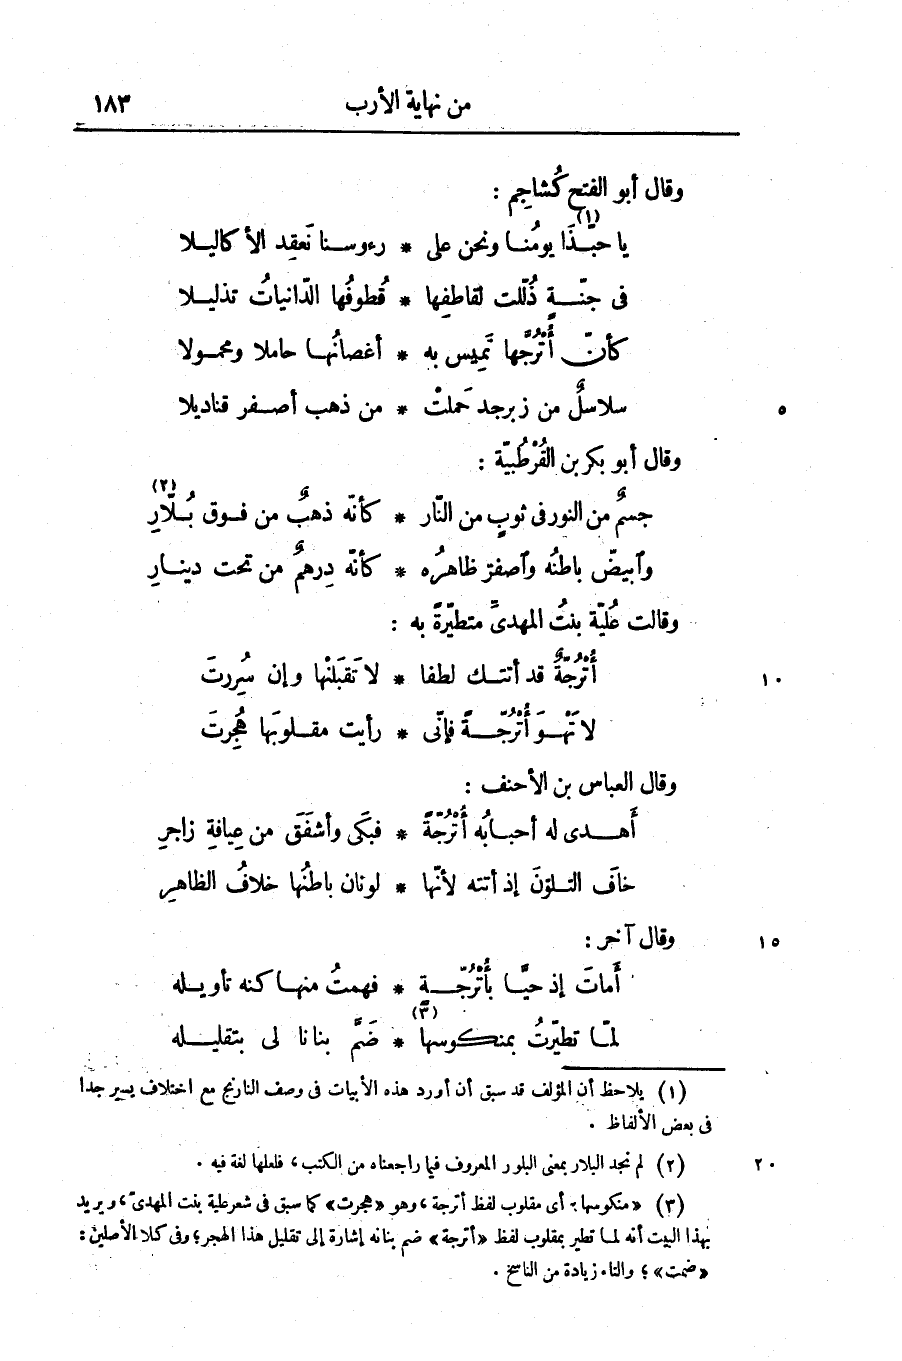 من نهاية الأرب ١٨٣
وقال أبو الفتح كُشاجِم :
يا حبّذَا(١) يومُنا ونحن على * رءوسنا نَعقِد الأكاليلا
فى جنّةٍ ذُلّلت لقاطفِها * قُطوفُها الدّانياتُ تذليلا
كأنّ أُتْرُجَّها تَمِيس به * أغصانُها حاملا ومحمولا
سلاسلٌ من زبرجد حَملتْ * من ذهب أصفر قناديلا ٥
وقال أبو بكر بن القُرْطُبيّة :
جسمٌ من النور فى ثوبٍ من النّار * كأنّه ذهبٌ من فوق بُلّارِ(٢)
وآبيضّ باطنُه وآصفرّ ظاهرُه * كأنّه دِرهمٌ من تحت دينارِ
وقالت عُليّة بنتُ المهدىّ متطيّرةً به :
أُتْرُجّةٌ قد أتتك لطفا * لا تَقبَلنْها وإن سُرِرتَ ١٠
لا تَهْوَ أُتْرُجّةً فإنّى * رأيت مقلوبَها هُجِرتَ
وقال العباس بن الأحنف :
أَهدى له أحبابُه أُتْرُجّةً * فبكَى وأشفَقَ من عِيافةِ زاجرِ
خافَ التلوّنَ إذ أتته لأنّها * لونان باطنُها خلافُ الظاهرِ
وقال آخر : ١٥
أَماتَ إذ حيَّا بأُتْرُجّةٍ * فهمتُ منها كنه تأويله
لمّا تطيّرتُ بمنكوسها(٣) * ضَمَّ بنانا لى بتقليله
(١) يلاحظ أن المؤلف قد سبق أن أورد هذه الأبيات فى وصف النارنج مع اختلاف يسير جدا
فى بعض الألفاظ .
(٢) لم نجد البلار بمعنى البلور المعروف فيما راجعناه من الكتب ، فلعلها لغة فيه . ٢٠
(٣) «منكوسها» أى مقلوب لفظ أترجة ، وهو «هجرت» كما سبق فى شعر علية بنت المهدىّ ، ويريد
بهذا البيت أنه لما تطير بمقلوب لفظ «أترجة» ضم بنانه إشارة إلى تقليل هذا الهجر ؛ وفى كلا الأصلين :
«ضمت» ؛ والتاء زيادة من الناسخ .